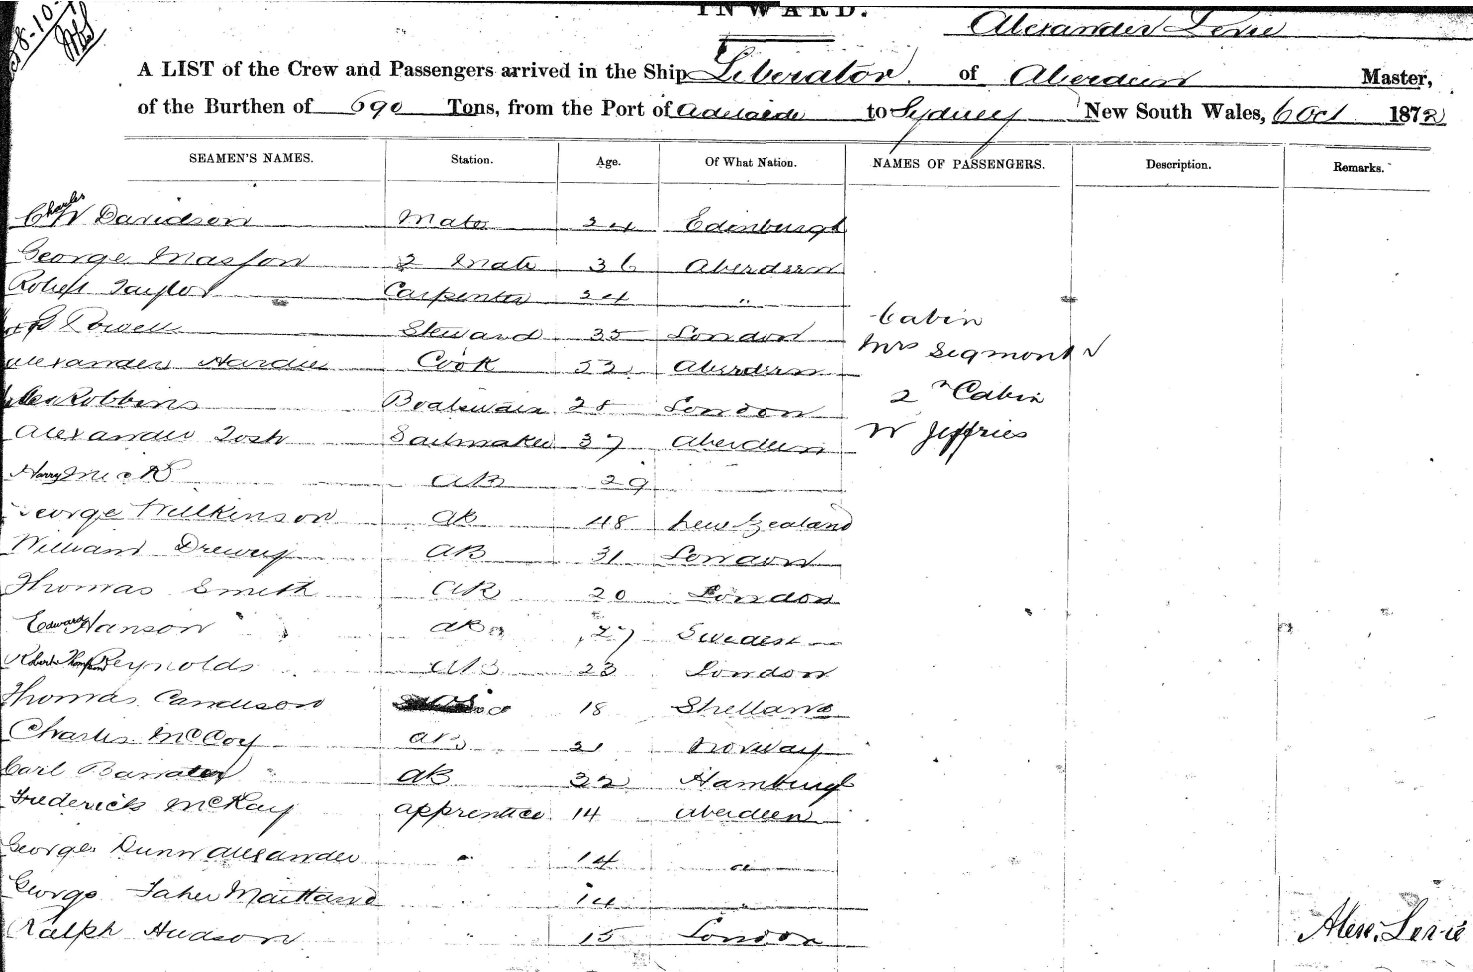 INWARD.
8-10-7
Alexander Levie
A LIST of the Crew and Passengers arrived in the Ship Liberator of Aberdeen Master,
of the Burthen of 690 Tons, from the Port of Adelaide to Sydney New South Wales, 6 Oct 1872
SEAMEN'S NAMES. Station. Age. Of What Nation. NAMES OF PASSENGERS. Description. Remarks.
Charles W Davidson Mate 24 Edinburgh
George Masson 2 Mate 36 Aberdeen
Robert Taylor Carpenter 24 "
Powell Steward 35 London Cabin
Alexander Hardie Cook 52 Aberdeen Mrs Segmont
Robbins Boatswain 28 London 2n Cabin
Alexander Tosh Sailmaker 37 Aberdeen W Jeffries
Harry Mick AB 29
George Wilkinson AB 48 New Zealand
William Drewry AB 31 London
Thomas Smith AB 20 London
Edward Hanson AB 27 Sweden
Robert Thompson Reynolds AB 23 London
Thomas Candison OS 18 Shetland
Charles McCoy AB 21 Norway
Carl AB 32 Hamburgh
Frederick McKay apprentice 14 Aberdeen
George Dunn Alexander " 14 "
George Maitland " 14 "
Ralph Hudson " 15 London
Alex. Levie